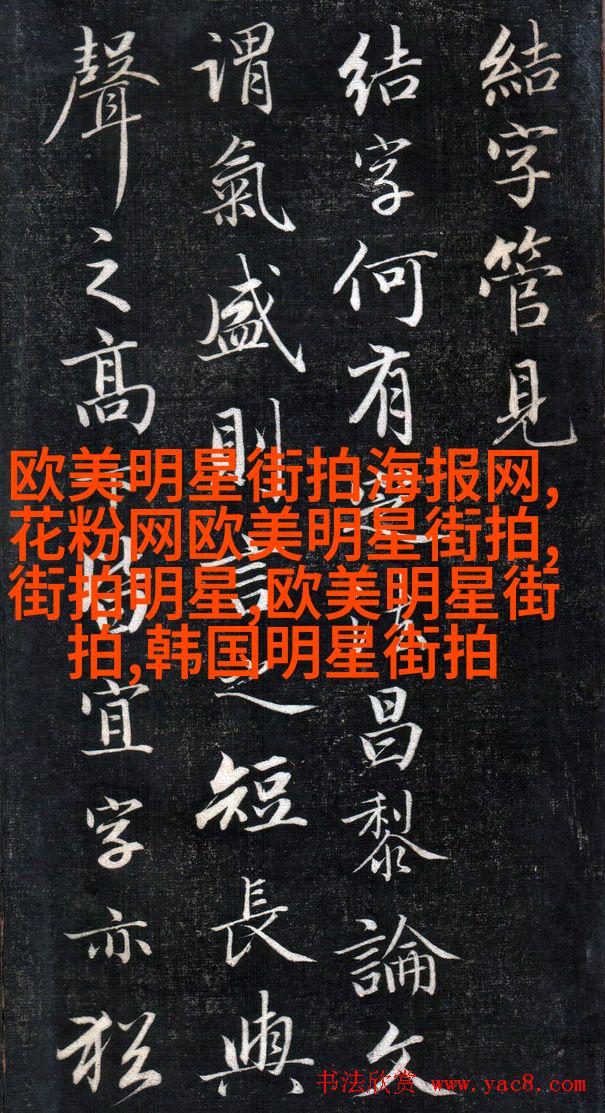 結字管見
结字何有法昌黎論文
謂氣盛則言之短長與
聲之高下皆宜字亦猶
欧美明星街拍海报网,
花粉网欧美明星街拍,
街拍明星,欧美明星街
拍,韩国明星街拍
书法欣赏 www.yac8.com